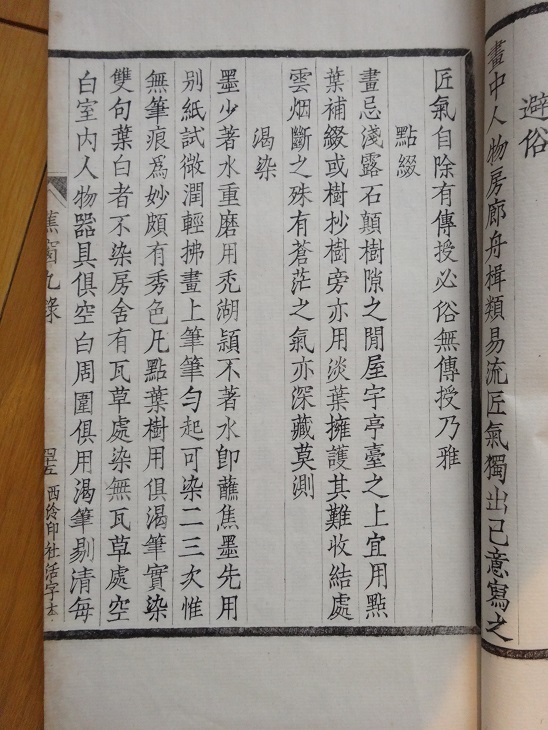 避俗
畫中人物房廊舟楫類易流匠氣獨出己意寫之
匠氣自除有傳授必俗無傳授乃雅
點綴
畫忌淺露石顛樹隙之閒屋宇亭臺之上宜用點
葉補綴或樹抄樹旁亦用淡葉擁護其難收結處
雲烟斷之殊有蒼茫之氣亦深藏莫測
渴染
墨少著水重磨用禿湖頴不著水卽蘸焦墨先用
别紙試微潤輕拂畫上筆筆勻起可染二三次惟
無筆痕爲妙頗有秀色凡點葉樹用俱渴筆實染
雙句葉白者不染房舍有瓦草處染無瓦草處空
白室內人物器具俱空白周圍俱用渴筆剔清每
蕉窗九錄
西泠印社活字本